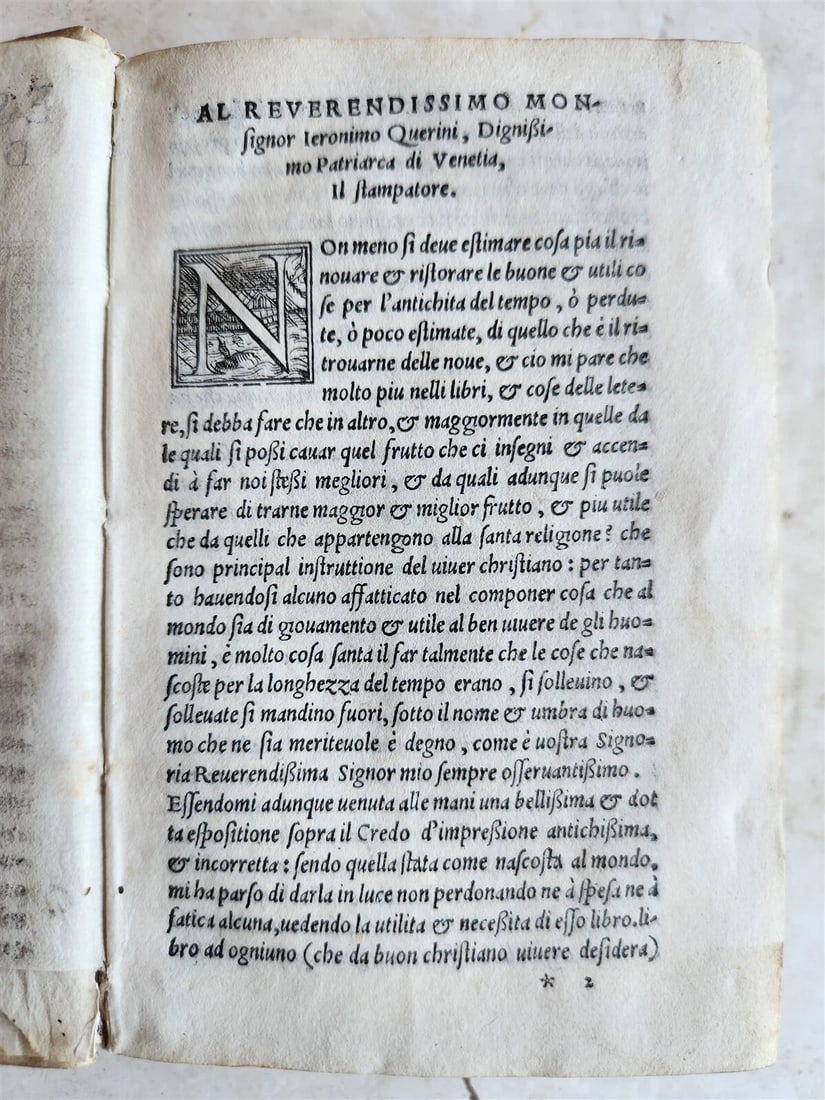 AL REVERENDISSIMO MON-
ſignor Ieronimo Querini, Digniſſi-
mo Patriarca di Venetia,
Il ſtampatore.
NOn meno ſi deue eſtimare coſa pia il ri=
nouare & riſtorare le buone & utili co
ſe per l'antichita del tempo, ò perdu=
te, ò poco eſtimate, di quello che è il ri=
trouarne delle noue, & cio mi pare che
molto piu nelli libri, & coſe delle lete=
re, ſi debba fare che in altro, & maggiormente in quelle da
le quali ſi poßi cauar quel frutto che ci inſegni & accen=
di à far noi ſteßi megliori, & da quali adunque ſi puole
ſperare di trarne maggior & miglior frutto, & piu utile
che da quelli che appartengono alla ſanta religione? che
ſono principal inſtruttione del uiuer chriſtiano: per tan=
to hauendoſi alcuno affatticato nel componer coſa che al
mondo ſia di giouamento & utile al ben uiuere de gli huo=
mini, è molto coſa ſanta il far talmente che le coſe che na=
ſcoſte per la longhezza del tempo erano, ſi ſolleuino, &
ſolleuate ſi mandino fuori, ſotto il nome & umbra di huo=
mo che ne ſia meriteuole è degno, come è uoſtra Signo=
ria Reuerendißima Signor mio ſempre oſſeruantißimo.
Eſſendomi adunque uenuta alle mani una bellißima & dot
ta eſpoſitione ſopra il Credo d'impreßione antichißima,
& incorretta: ſendo quella ſtata come naſcoſta al mondo,
mi ha parſo di darla in luce non perdonando ne à ſpeſa ne à
fatica alcuna, uedendo la utilita & neceßita di eſſo libro. li-
bro ad ogniuno (che da buon chriſtiano uiuere deſidera)
* 2